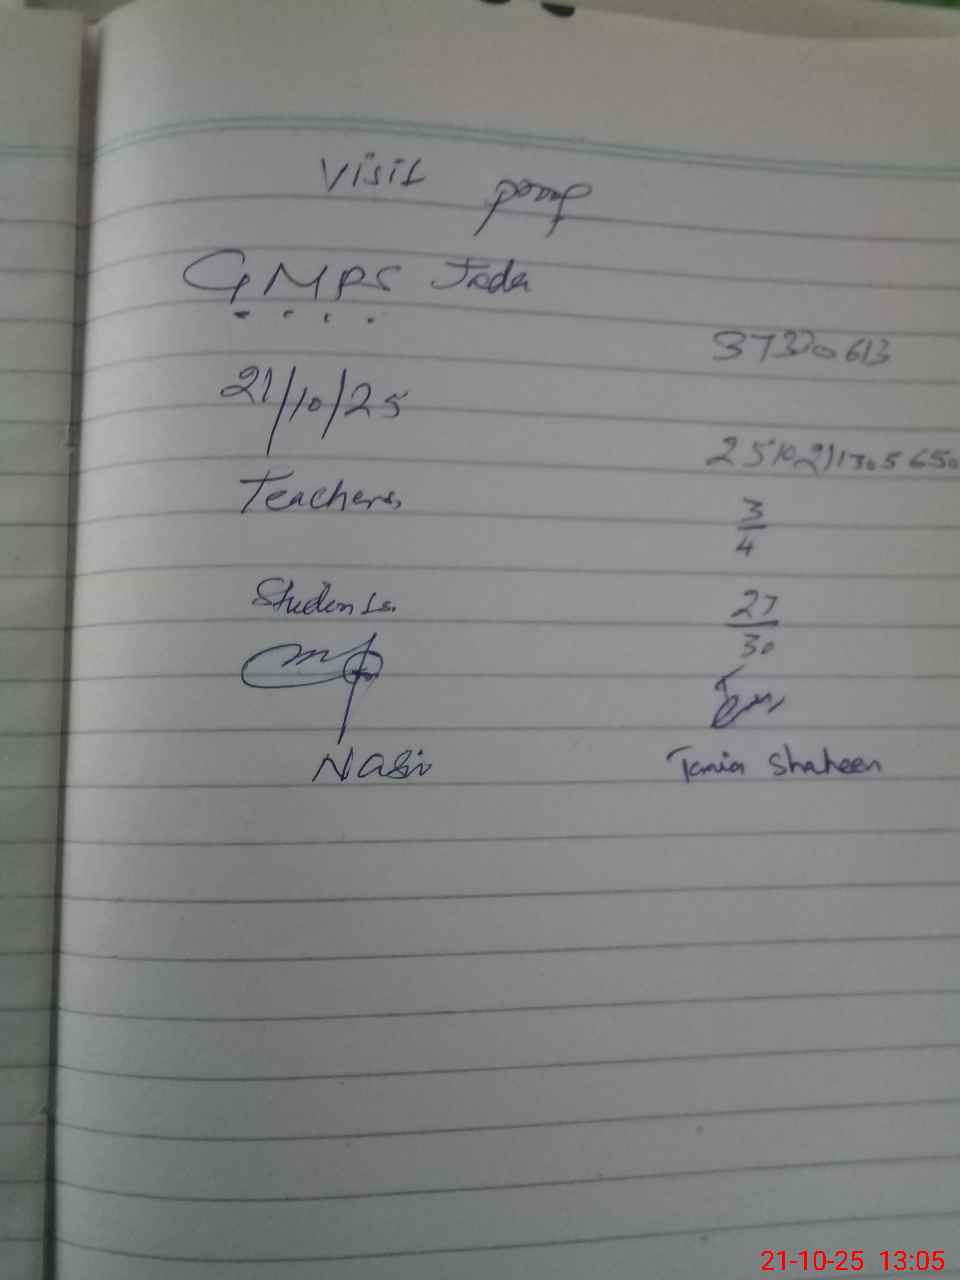 Visit proof
GMPS Jada
37320613
21/10/25
2510211305650
Teachers, 3/4
Students. 27/30
Nasir
Tania Shaheen
21-10-25 13:05